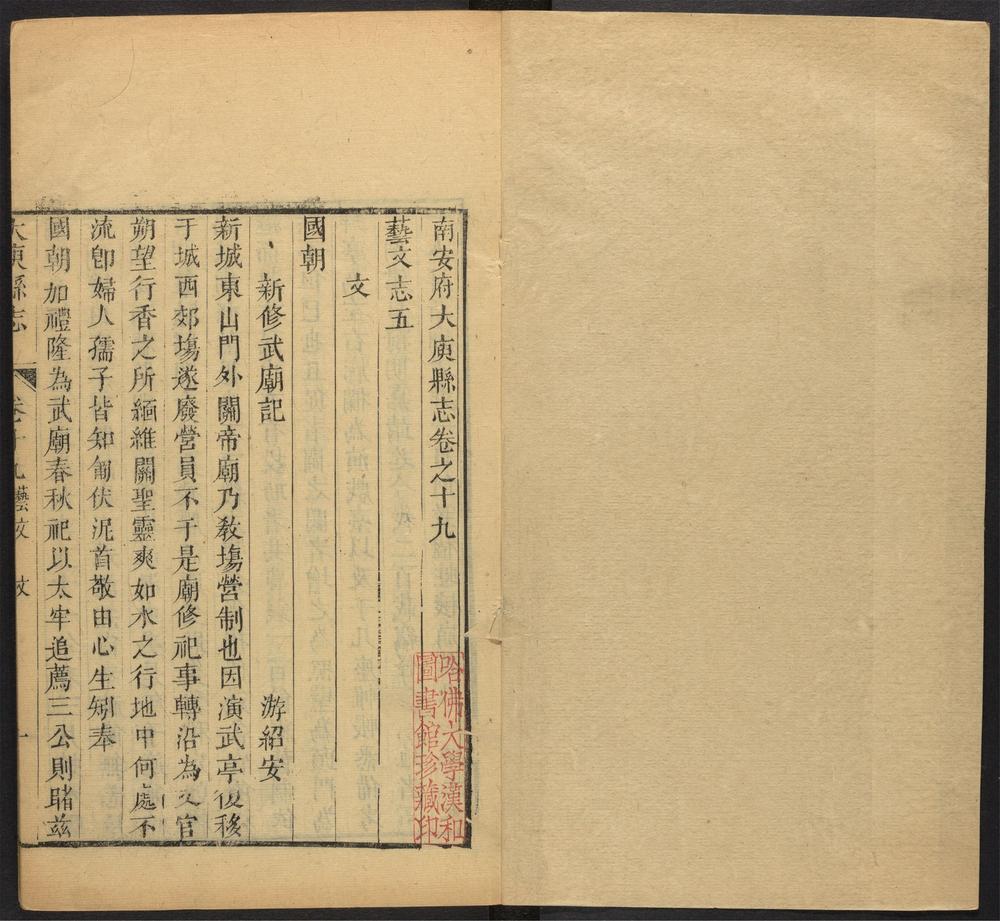 南安府大庾縣志卷之十九
藝文志五
文
國朝
新修武廟記 游紹安
新城東山門外關帝廟乃敎塲營制也因演武亭後移
于城西郊塲遂廢營員不于是廟修祀事轉沿為文官
朔望行香之所緬維關聖靈爽如水之行地中何處不
流卽婦人孺子皆知匍伏泥首敬由心生矧奉
國朝加禮隆為武廟春秋祀以太牢追薦三公則睹茲
大庾縣志 卷十九藝文 文 一
哈佛大學漢和
圖書館珍藏印